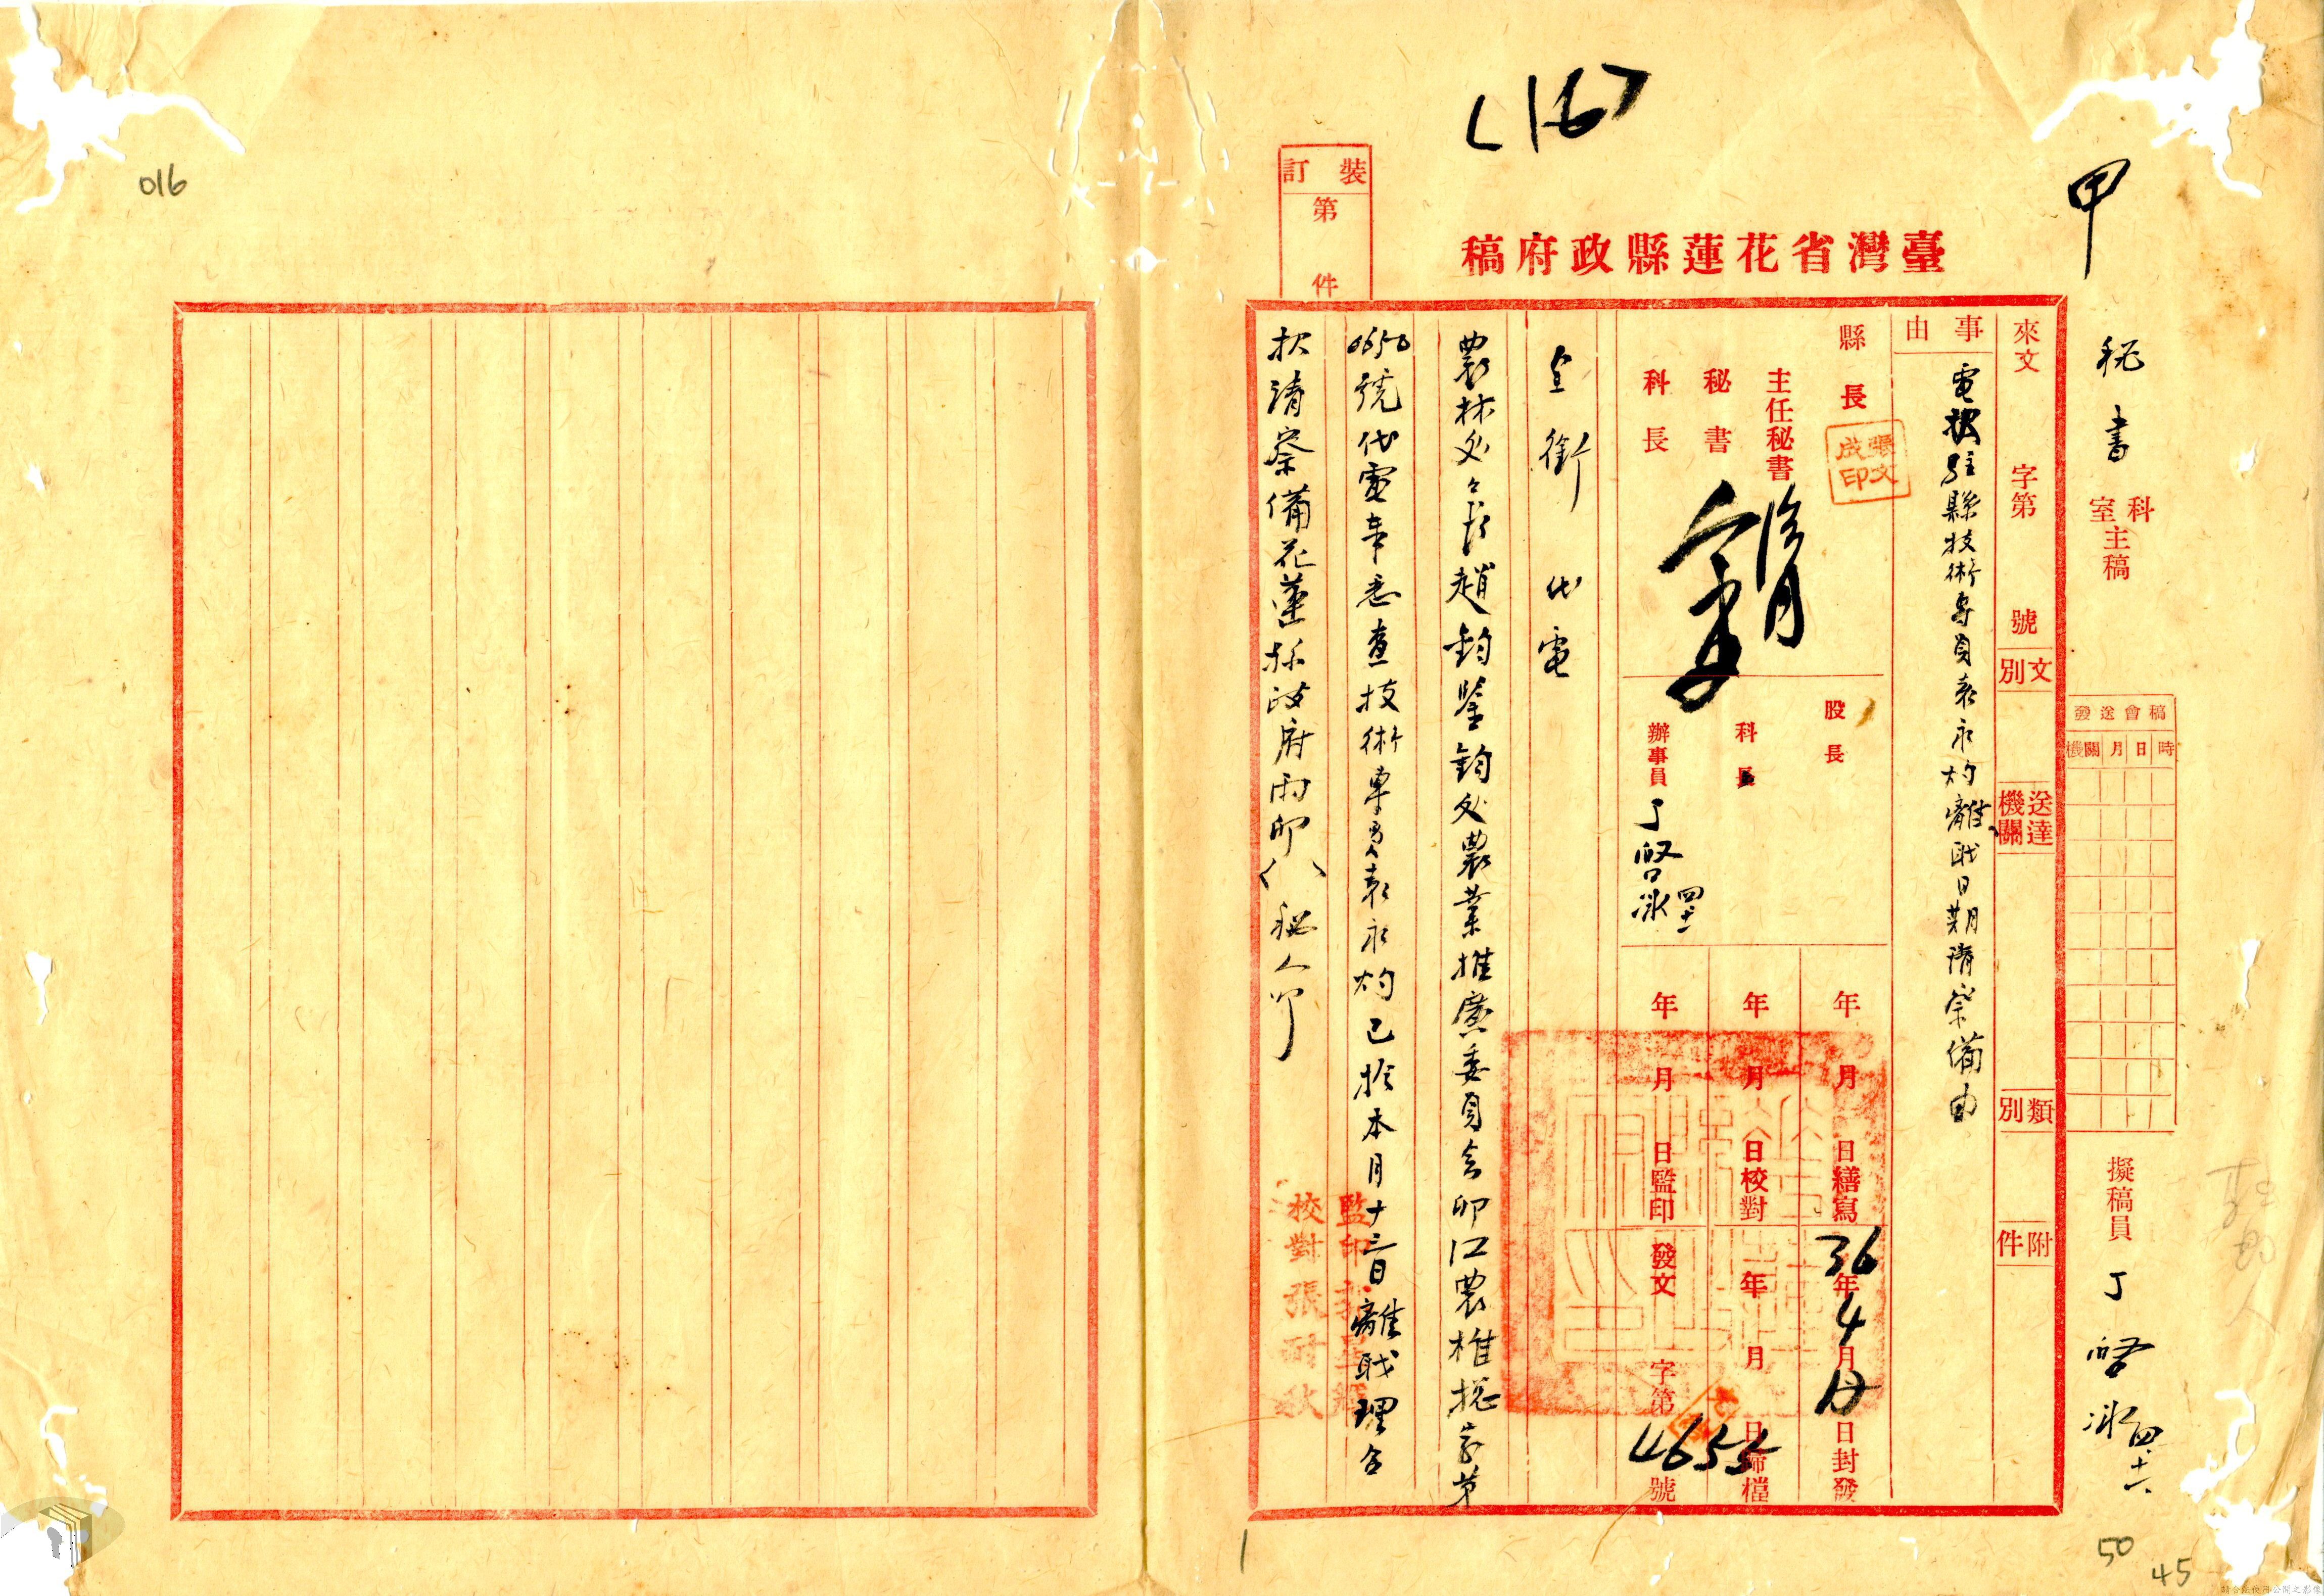 (16)
甲
臺灣省花蓮縣政府稿
裝訂
第 件
秘書 科室主稿
發送會稿
機關 月 日 時
擬稿員 丁
來文 字第 號
文別
送達機關
類別
附件
事由
電報駐縣技術專員袁永灼離職日期請察備由
縣長
張文成印
主任秘書
秘書
科長
股長
科員
辦事員 丁
年 月 日繕寫
年 月 日校對
年 月 日監印
36年4月 日封發
年 月 日歸檔
發文 字第4655號
全銜代電
農林處處長趙鈞鑒鈞處農業推廣委員會卯江農推總字第
0650號代電奉悉查技術專員袁永灼已於本月十三日離職理合
報請察備花蓮縣政府 印( )秘人印
監印
校對張耐秋
016
50
45